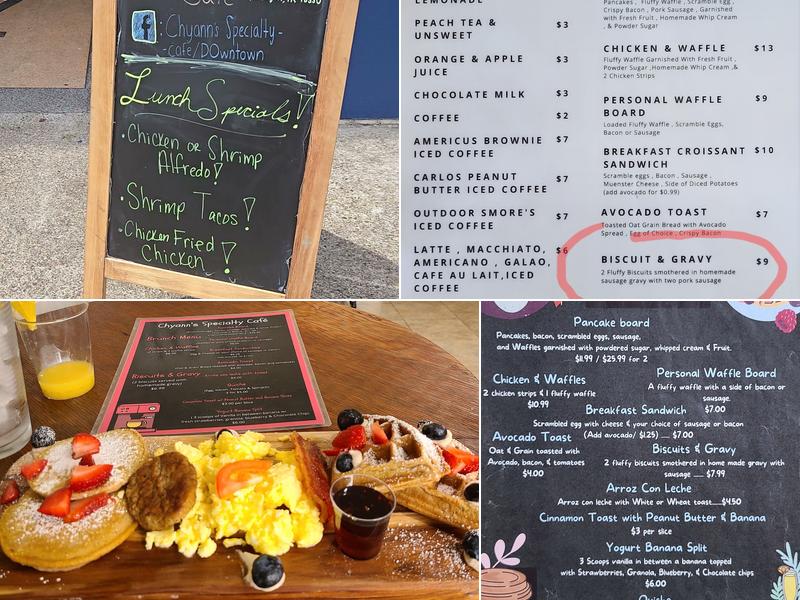 Cafe
Chyann's Specialty-
-cafe/DOwntown
Lunch Specials!
·Chicken or Shrimp
Alfredo!
·Shrimp Tacos!
·Chicken Fried
Chicken!
LEMONADE
PEACH TEA & $3
UNSWEET
ORANGE & APPLE $3
JUICE
CHOCOLATE MILK $3
COFFEE $2
AMERICUS BROWNIE $7
ICED COFFEE
CARLOS PEANUT $7
BUTTER ICED COFFEE
OUTDOOR SMORE'S $7
ICED COFFEE
LATTE , MACCHIATO, $6
AMERICANO , GALAO,
CAFE AU LAIT,ICED
COFFEE
Pancakes , Fluffy Waffle , Scramble Egg ,
Crispy Bacon , Pork Sausage , Garnished
with Fresh Fruit , Homemade Whip Cream
, & Powder Sugar
CHICKEN & WAFFLE $13
Fluffy Waffle Garnished With Fresh Fruit ,
Powder Sugar ,Homemade Whip Cream ,&
2 Chicken Strips
PERSONAL WAFFLE $9
BOARD
Loaded Fluffy Waffle , Scramble Eggs,
Bacon or Sausage
BREAKFAST CROISSANT $10
SANDWICH
Scramble eggs , Bacon , Sausage ,
Muenster Cheese , Side of Diced Potatoes
(add avocado for $0.99)
AVOCADO TOAST $7
Toasted Oat Grain Bread with Avocado
Spread , Egg of Choice , Crispy Bacon
BISCUIT & GRAVY $9
2 Fluffy Biscuits smothered in homemade
sausage gravy with two pork sausage
Chyann's Specialty Café
Brunch Menu
Biscuits & Gravy
(2 biscuits served with
homemade gravy)
$6.99
Quiche
Yogurt Banana Split
Pancake board
Pancakes, bacon, scrambled eggs, sausage,
and Waffles garnished with powdered sugar, whipped cream & Fruit.
$11.99 / $25.99 for 2
Chicken & Waffles
2 chicken strips & 1 fluffy waffle
$10.99
Personal Waffle Board
A fluffy waffle with a side of bacon or
sausage.
$7.00
Breakfast Sandwich
Scrambled egg with cheese & your choice of sausage or bacon
(Add avocado/ $1.25) ..... $7.00
Avocado Toast
Oat & Grain toasted with
Avocado, bacon, & tomatoes
$4.00
Biscuits & Gravy
2 fluffy biscuits smothered in home made gravy with
sausage ...... $7.99
Arroz Con Leche
Arroz con leche with White or Wheat toast.....$4.50
Cinnamon Toast with Peanut Butter & Banana
$3 per slice
Yogurt Banana Split
3 Scoops vanilla in between a banana topped
with Strawberries, Granola, Blueberry, & Chocolate chips
$6.00
Quiche